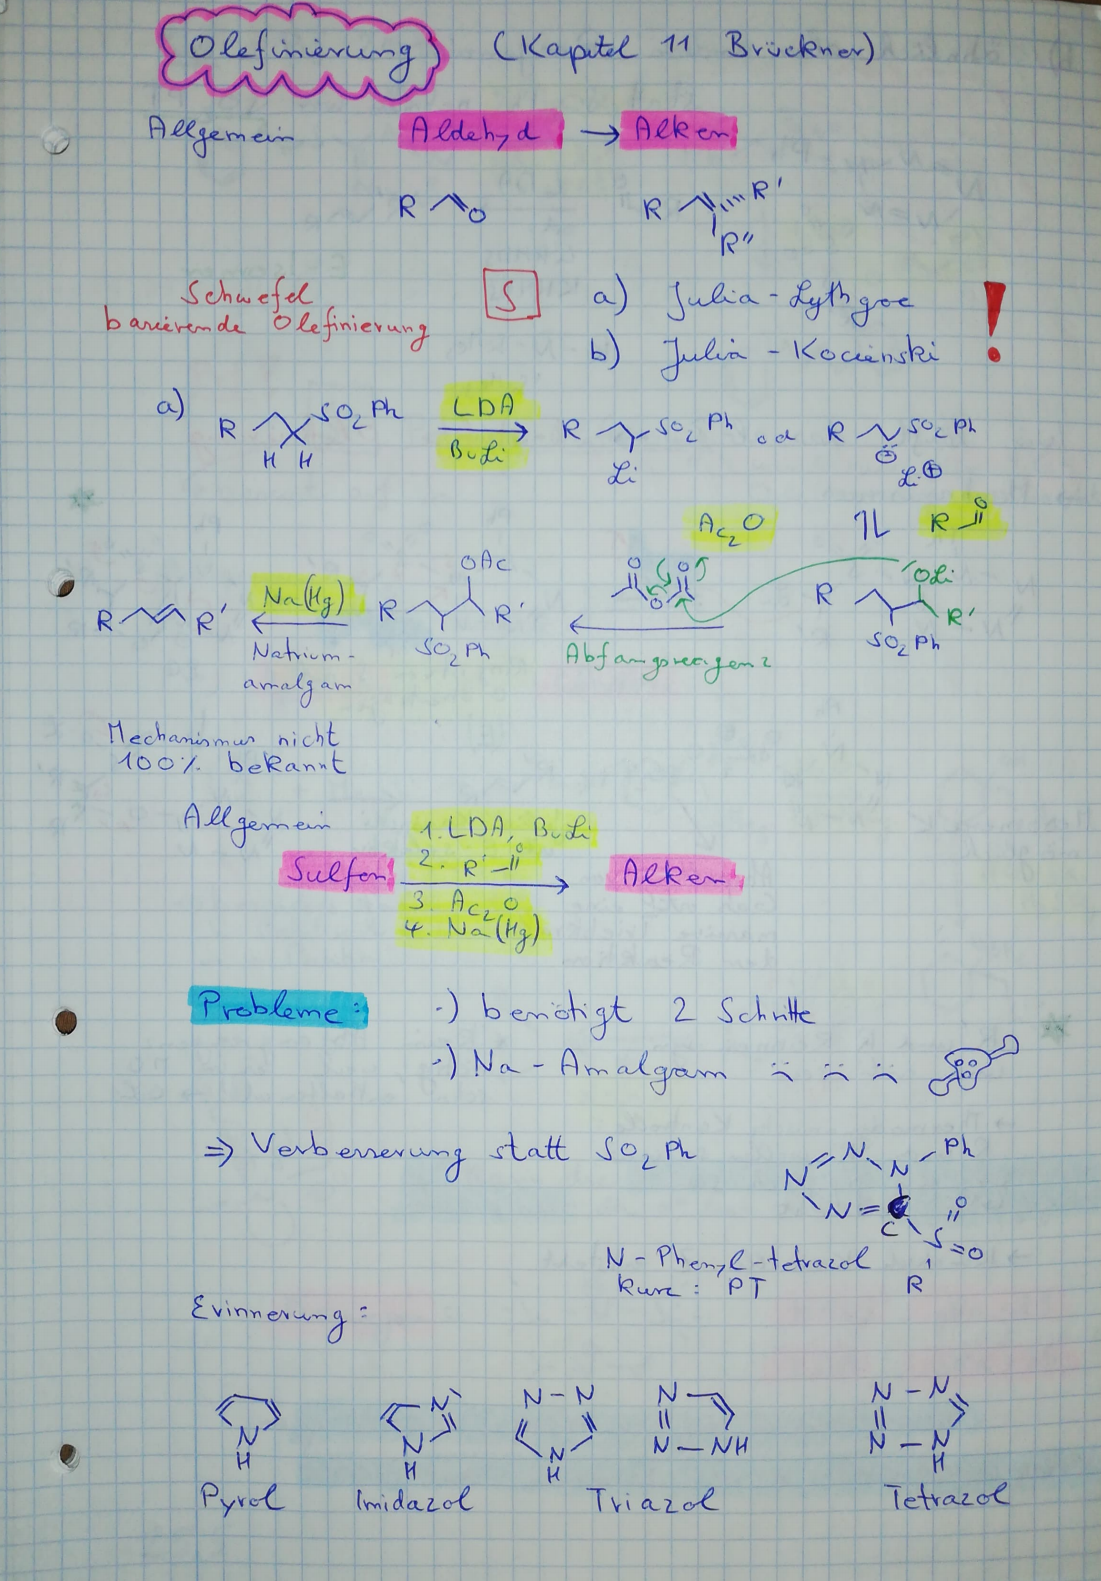 Olefinierung (Kapitel 11 Brückner)
Allgemein Aldehyd → Alken
R O R R'
R"
Schwefel S a) Julia-Lythgoe !
basierende Olefinierung
b) Julia-Kocienski
a) R SO2Ph LDA R SO2Ph od R SO2Ph
H H BuLi Li ⊖ Li⊕
Ac2O R O
OAc O O O OLi
R R' Na(Hg) R R' R R'
Natrium- SO2Ph Abfangreagenz SO2Ph
amalgam
Mechanismus nicht
100% bekannt
Allgemein 1. LDA, BuLi
2. R' O
Sulfon → Alken
3. Ac2O
4. Na(Hg)
Probleme: ·) benötigt 2 Schritte
·) Na-Amalgam :( :( :(
⇒ Verbesserung statt SO2Ph N=N N Ph
N N= C S =O O
R
N-Phenyl-tetrazol
kurz: PT
Erinnerung:
N N-N N N-N
N N N-NH N-N
H H H H
Pyrol Imidazol Triazol Tetrazol